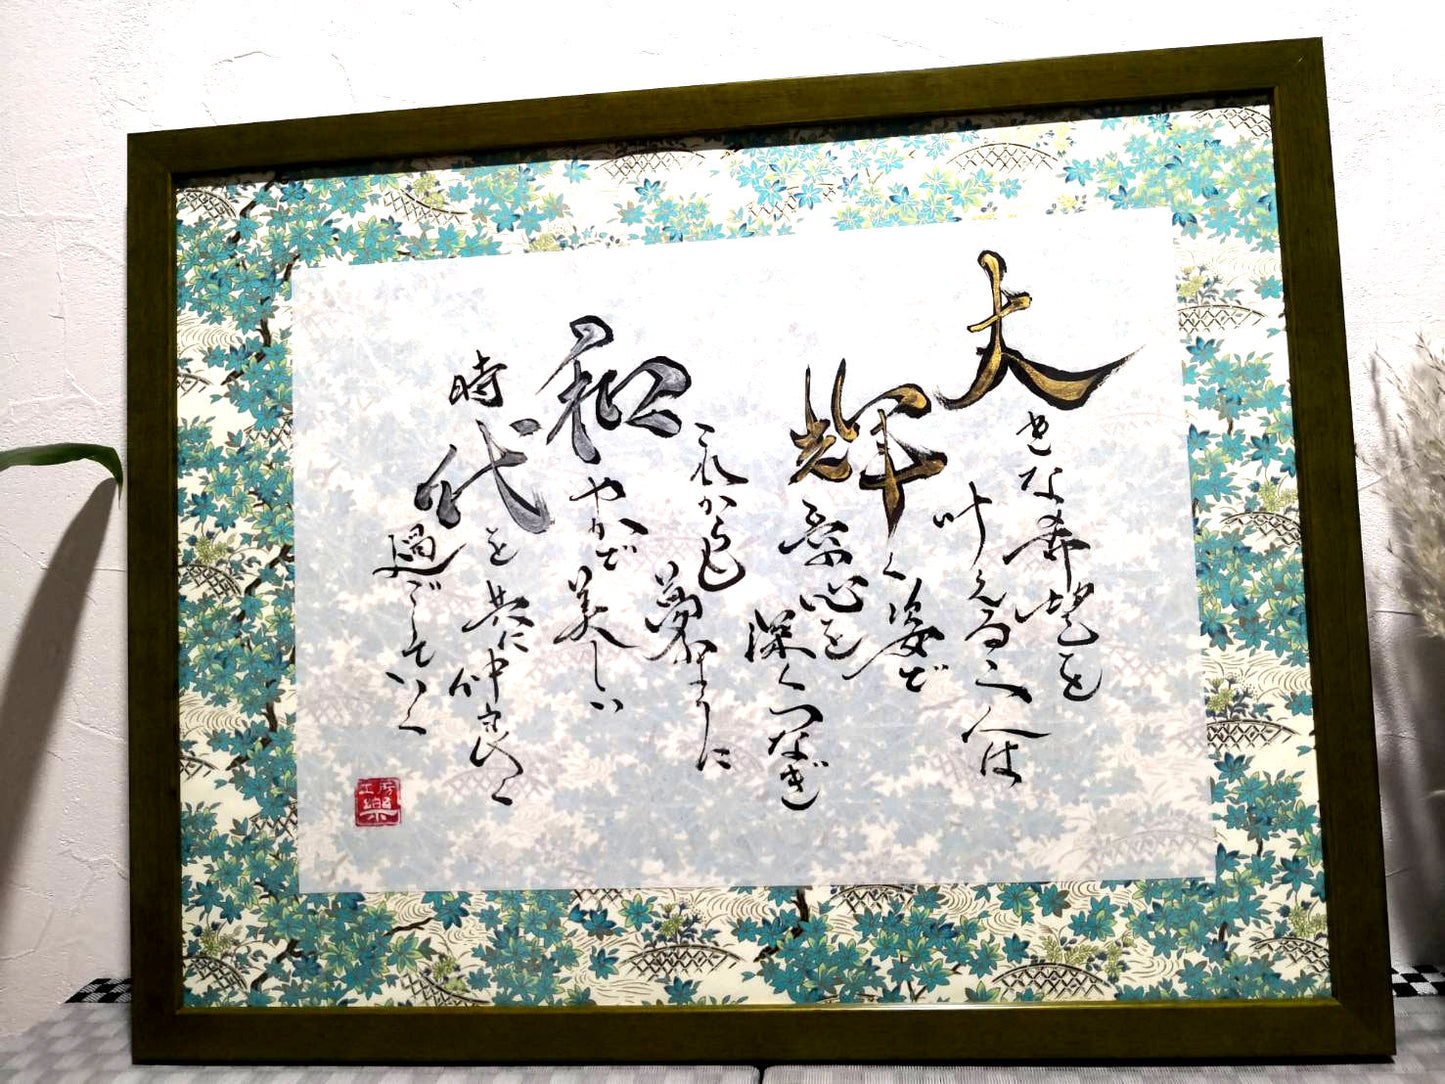 大きな希望を
叶える人は
輝く姿で
親心を
深くつなぎ
これからも
夢のように
和やかで
美しい
時代を共に仲良く
過ごしていく
工房
樂